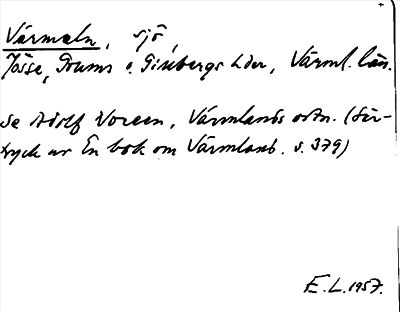 Värmeln, sjö,
Jösse, Grums o. Gillbergs hder, Värml. län.
Se Adolf Noreen, Värmlands ortn. (Sär-
tryck ur En bok om Värmland. s. 379)
E.L. 1957.